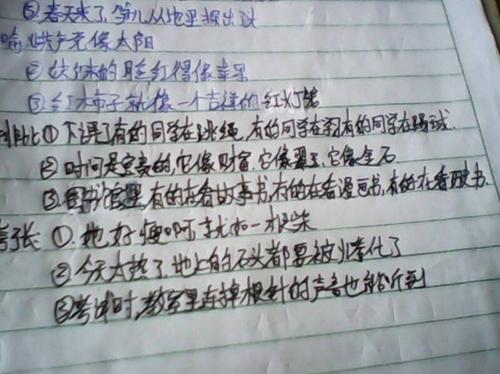 ③春天来了,笋儿从地里探出头
喻 ①共产党像太阳
②妹妹的脸红得像苹果
③红柿子就像一个吉祥的红灯笼
排比①下课了有的同学在跳绳,有的同学在 有的同学在踢球.
②时间是宝贵的,它像财富,它像 它像金石
③图书馆里,有的在看故事书,有的在看漫画书,有的在看 书.
夸张 ①.她好瘦啊就如一根柴
②今天太热了,地上的石头都要被火烤化了
③考试时,教室里连掉根针的声音也能听到